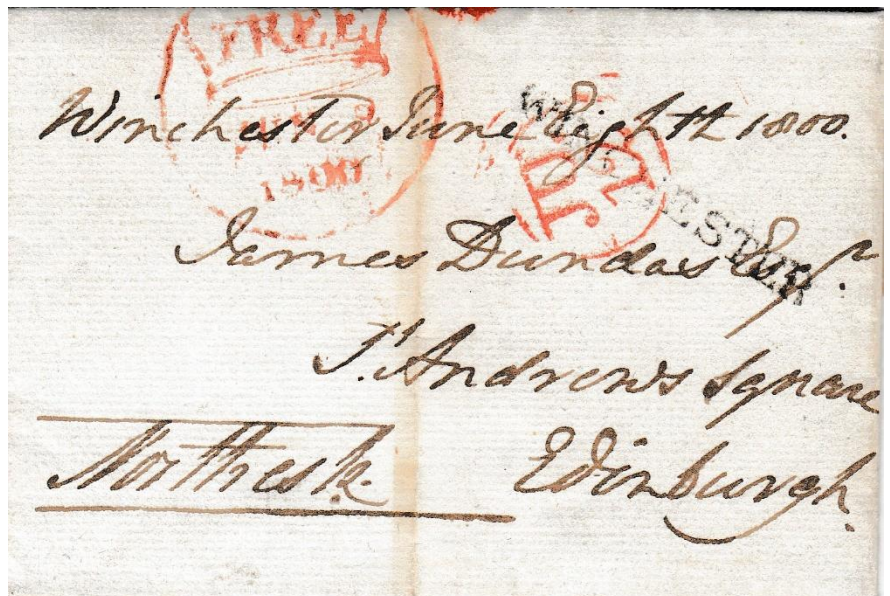 FREE
1800
Winchester June Eighth 1800.
WINCHESTER
James Dundas Esqr.
St. Andrews Square
Northesk Edinburgh.